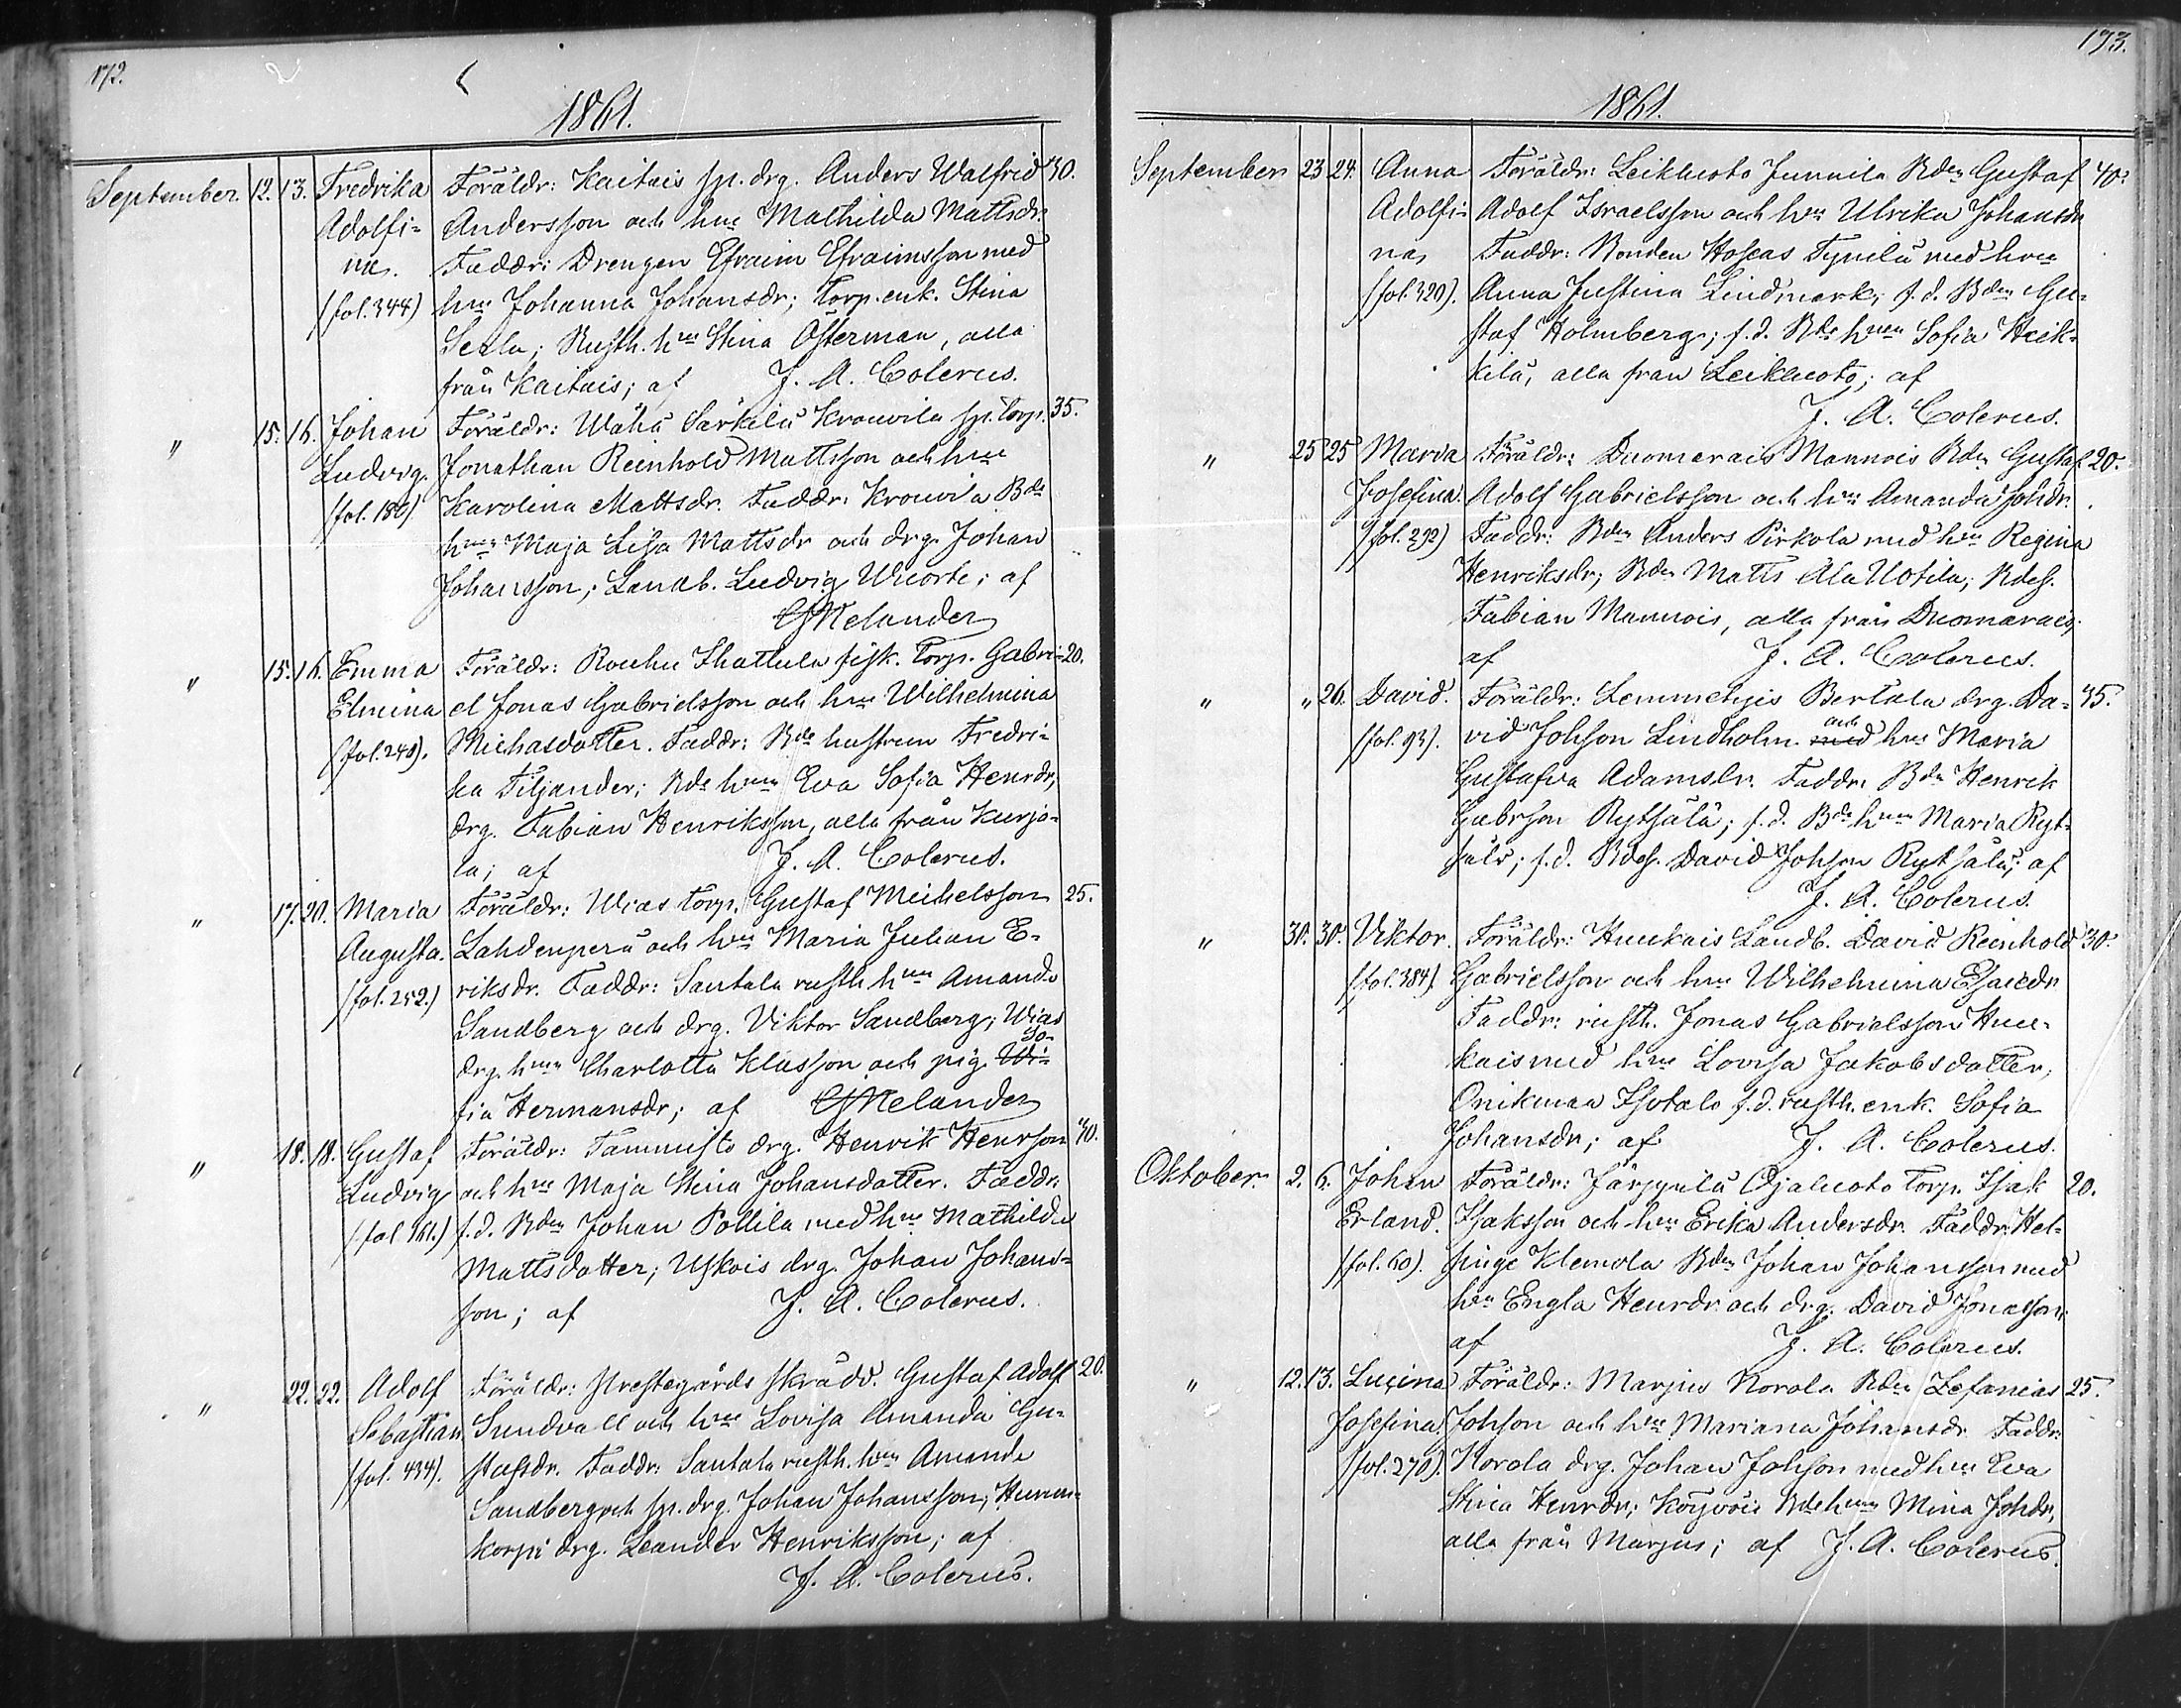 172.
1861.
September. 12. 13. Fredrika Föräldr: Kaitais sp. drg. Anders Walfrid 30.
Adolfi- Andersson och hu Mathilda Mattsdr.
na. Faddr: Drengen Efraim Efraimsson med
(fol. 344) hu Johanna Johansdr; Torp. enk. Stina
Rusth. hu Stina Österman, alla
från Kaitais; af J. A. Colerus.
" 15. 16. Johan Föräldr: Wähä Särkilä Krouvila sp. torp. 35.
Ludvig. Jonathan Reinhold Mattsson och hu
(fol. 186) Karolina Mattsdr. Faddr: Krouvila Bde
hu Maja Lisa Mattsdr och drg. Johan
Johansson; Landb. Ludvig Wuorte; af
Melander
" 15. 16. Emma Föräldr: Rouhu Thattula fisk. Torp. Gabri- 20.
Elmina el Jonas Gabrielsson och hu Wilhelmina
(fol. 240). Michasdotter. Faddr: Bde hustrun Fredri-
ka Tiljander; Bde hu Eva Sofia Henrdr,
drg. Fabian Henriksson, alla från Kurjo-
la; af J. A. Colerus.
" 17. 20. Maria Föräldr: Wias torp. Gustaf Michelsson 25.
Augusta. Lahdenperä och hu Maria Julian E-
(fol. 252.) riksdr. Faddr: Santala rusth. hu Amanda
Sandberg och drg. Viktor Sandberg; Wias
So-
drg. hu Charlotta Klasson och pig. Wi-
fia Hermansdr; af Melander
" 18. 18. Gustaf Föräldr: Tammisto drg. Henrik Henrson 40.
Ludvig och hu Maja Stina Johansdotter. Faddr:
(fol 161.) f. d. Bden Johan Pollila med hu Mathilda
Mattsdotter; Uskois drg. Johan Johans-
son; af J. A. Colerus.
" 22. 22. Adolf Föräldr: Prestegårds skrädd. Gustaf Adolf 20.
Sebastian Sundvall och hu Lovisa Amanda Gu-
(fol. 434). stafsdr. Faddr: Santala rusth. hu Amanda
Sandberg och sp. drg. Johan Johansson; Humm-
korpi drg. Leander Henriksson; af
J. A. Colerus.
173.
1861.
September 23 24. Anna Föräldr: Leikluoto Junnila Bden Gustaf 40.
Adolfi- Adolf Israelsson och hu Ulrika Johansdr
na, Faddr: Bonden Hoseas Tynilä med hu
(fol. 320). Anna Justina Lindmark; f. d. Bden Gu-
staf Holmberg; f. d. Bde hu Sofia Heik-
kilä, alla från Leikluoto; af
J. A. Colerus.
" 25 25 Maria Föräldr: Duomarais Mannois Bden Gustaf 20.
Josefina. Adolf Gabrielsson och hu Amanda Johdr.
(fol. 292) Faddr: Bden Anders Pirkola med hu Regina
Henriksdr; Bden Matts Ala Uotila; Bdes.
Fabian Mannois, alla från Duomarais;
af J. A. Colerus.
" " 26. David. Föräldr: Lemmetyis Bertala drg. Da- 45.
och
(fol. 93). vid Johson Lindholm med hu Maria
Gustafva Adamsdr. Faddr: Bden Henrik
Gabrson Rytsälä; f. d. Bde hu Maria Ryt-
sälä; f. d. Bdes. David Johson Rytsälä; af
J. A. Colerus.
" 30. 30. Viktor. Föräldr: Huukais Landb. David Reinhold 30.
(fol. 384). Gabrielsson och hu Wilhelmina Esaiedr.
Faddr: rusth. Jonas Gabrielsson Huu-
kais med hu Lovisa Jakobsdotter,
Onikmaa Isotalo f. d. rusth. enk. Sofia
Johansdr; af J. A. Colerus.
Oktober. 2. 6. Johan Föräldr: Järppilä Ojaluoto Torp. Isak 20.
Erland. Isaksson och hu Erika Andersdr. Faddr: Hel-
(fol. 60). singe Klemola Bden Johan Johansson med
hu Engla Henrdr. och drg. David Jonasson;
af J. A. Colerus.
" 12. 13. Lucina Föräldr: Marjus Korola Bden Zefanias 25.
Josefina. Johson och hu Mariana Johansdr. Faddr:
(fol. 270). Korola drg. Johan Johson med hu Eva
Stina Henrdr; Köyvöis Bde hu Mina Johdr,
alla från Marjus; af J. A. Colerus.